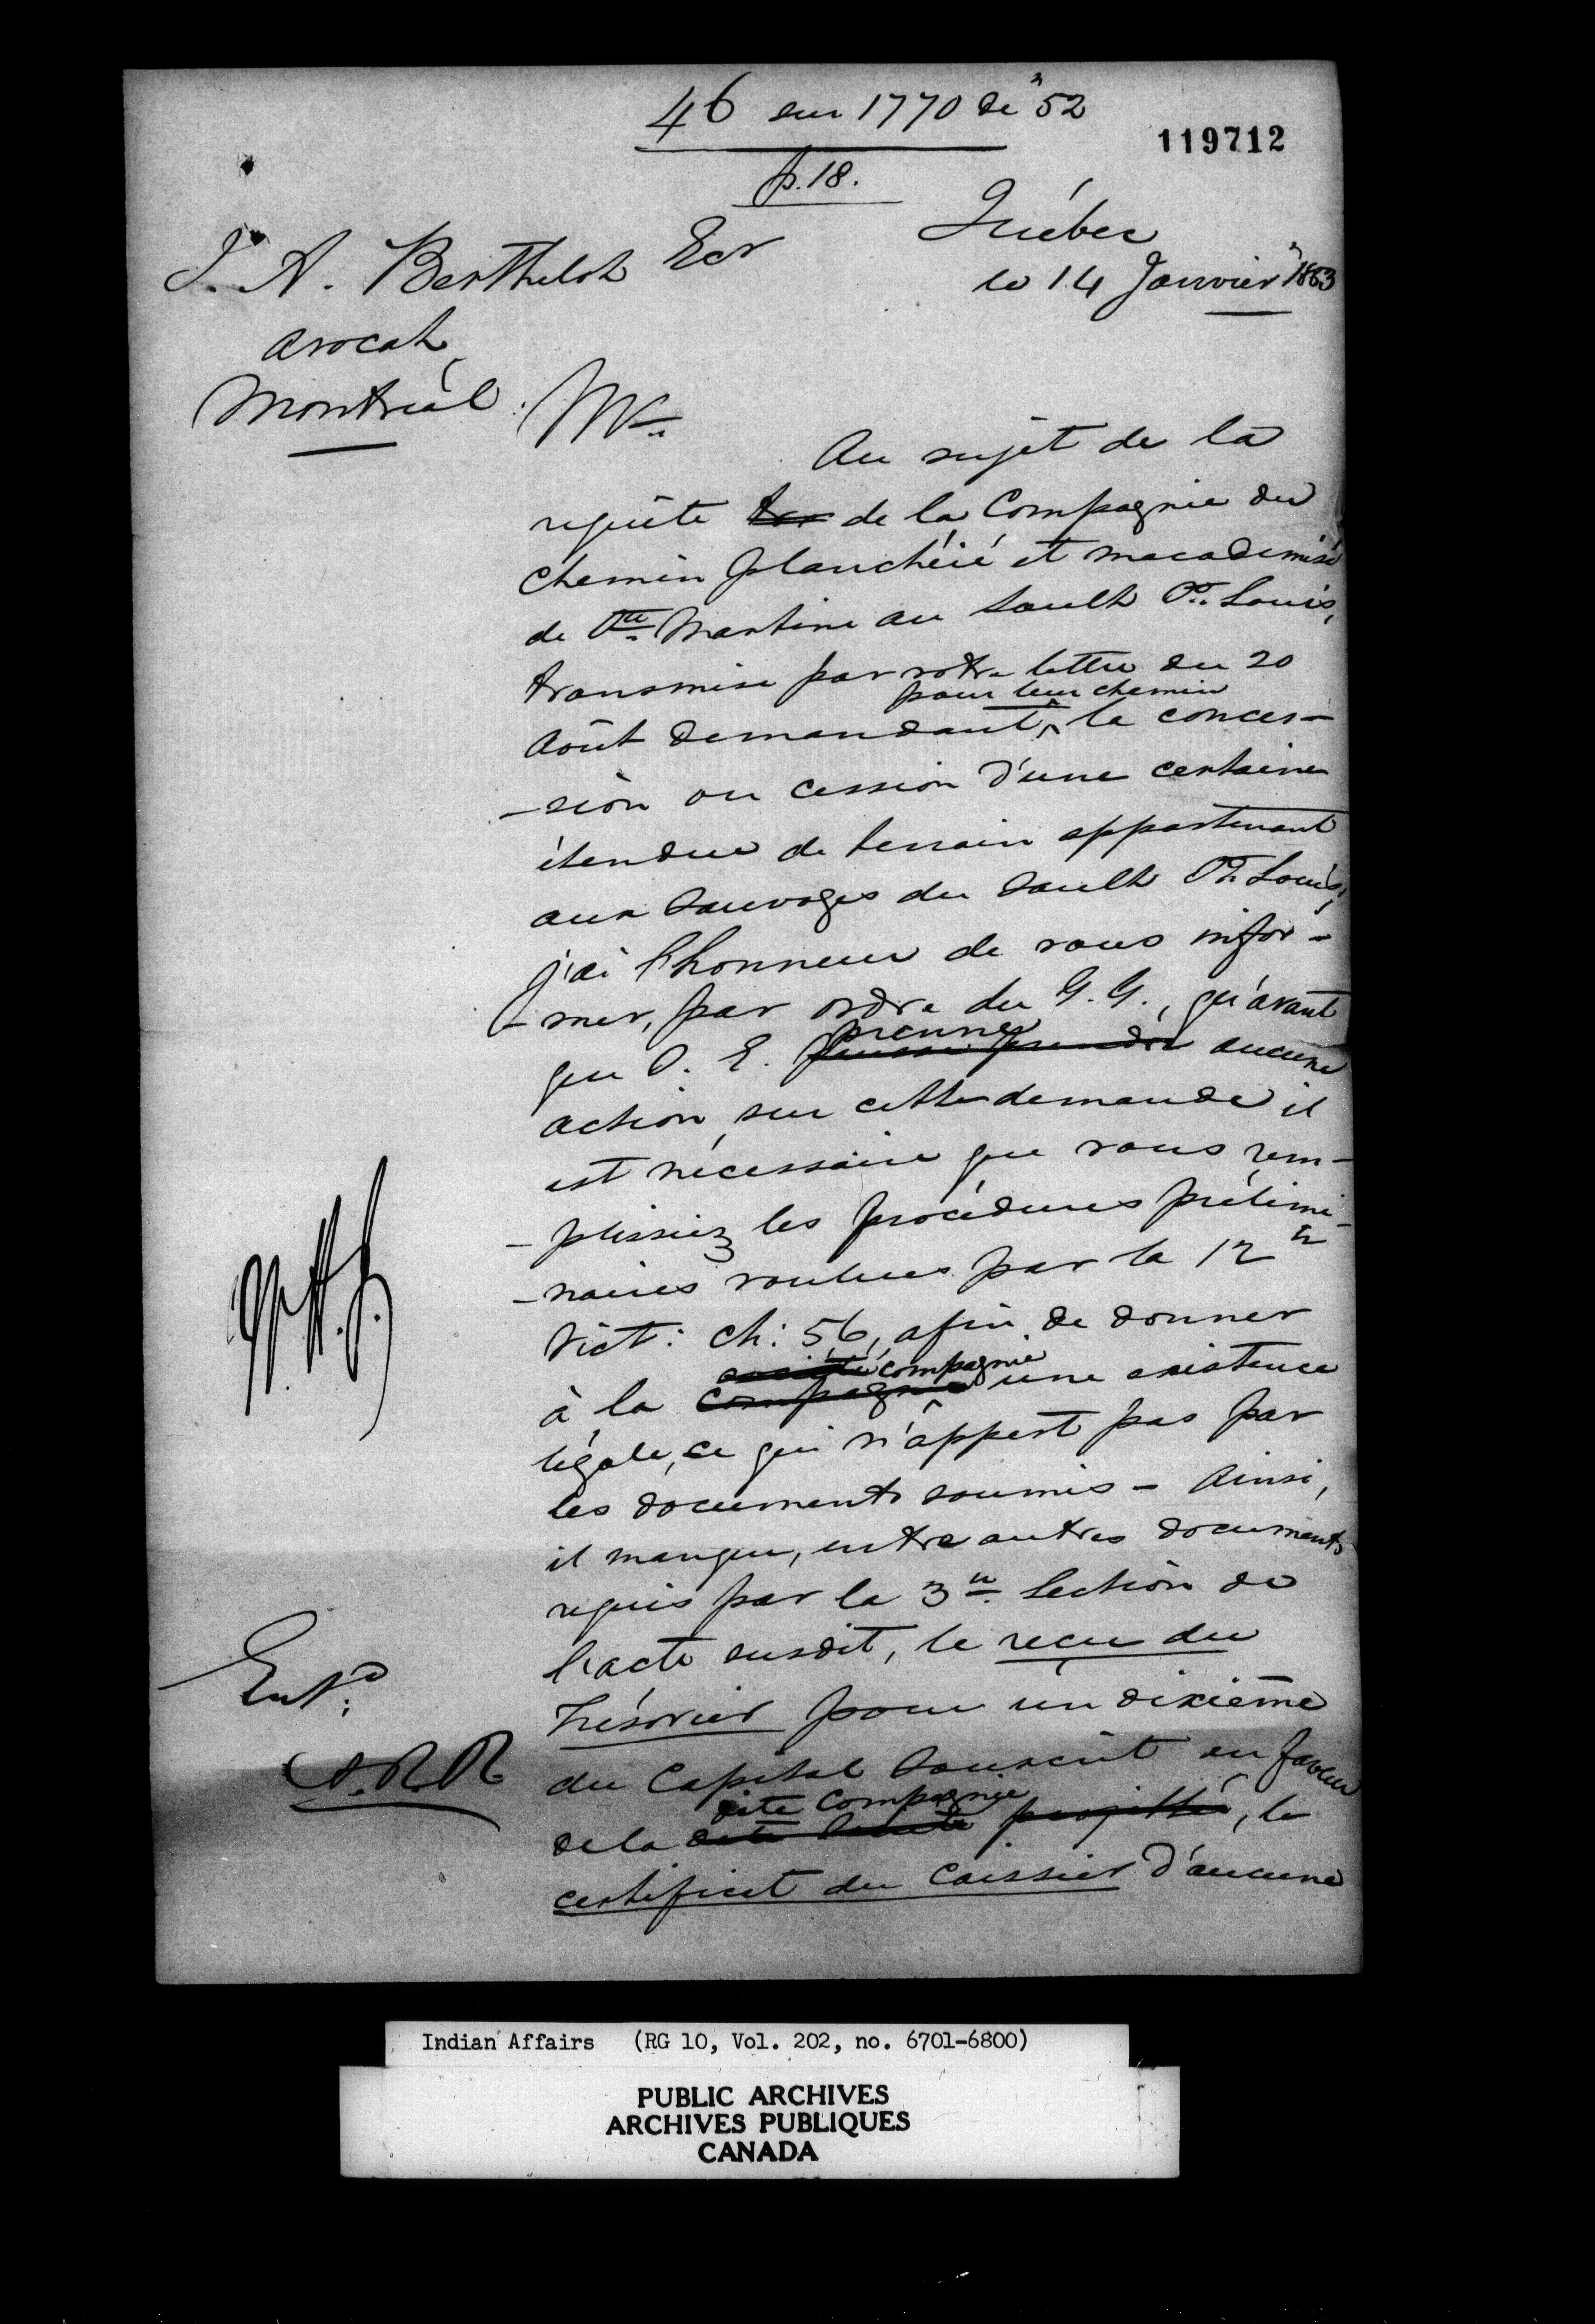 46 sur 1770 de 52
119712
p. 18.
Québec
le 14 Janvier 1853
J. A. Berthelot Ecr
avocat
Montréal
Mr.
Au sujet de la
requête de la Compagnie du
chemin planchéié et macadamisé
de Ste Martine au Sault St. Louis,
transmise par votre lettre du 20
pour leur chemin
Août demandant la conces-
-sion ou cession d'une certaine
étendue de terrain appartenant
aux Sauvages du Sault St. Louis,
j'ai l'honneur de vous infor-
-mer, par ordre du G. G., qu'avant
prenne
que S. E. puisse prendre aucune
action sur cette demande il
est nécessaire que vous rem-
-plissiez les procédures prélimi-
-naires voulues par la 12e
Vict: ch: 56, afin de donner
société compagnie
à la compagnie une existence
légale, ce qui n'appert pas par
les documents soumis - Ainsi,
il manque, entre autres documents
requis par la 3e Section de
l'acte susdit, le reçu du
Trésorier pour un dixième
du Capital Souscrit en faveur
dite Compagnie
de la dite Société projettée, le
certificat du Caissier d'aucune
Entd.
Indian Affairs (RG 10, Vol. 202, no. 6701-6800)
PUBLIC ARCHIVES
ARCHIVES PUBLIQUES
CANADA